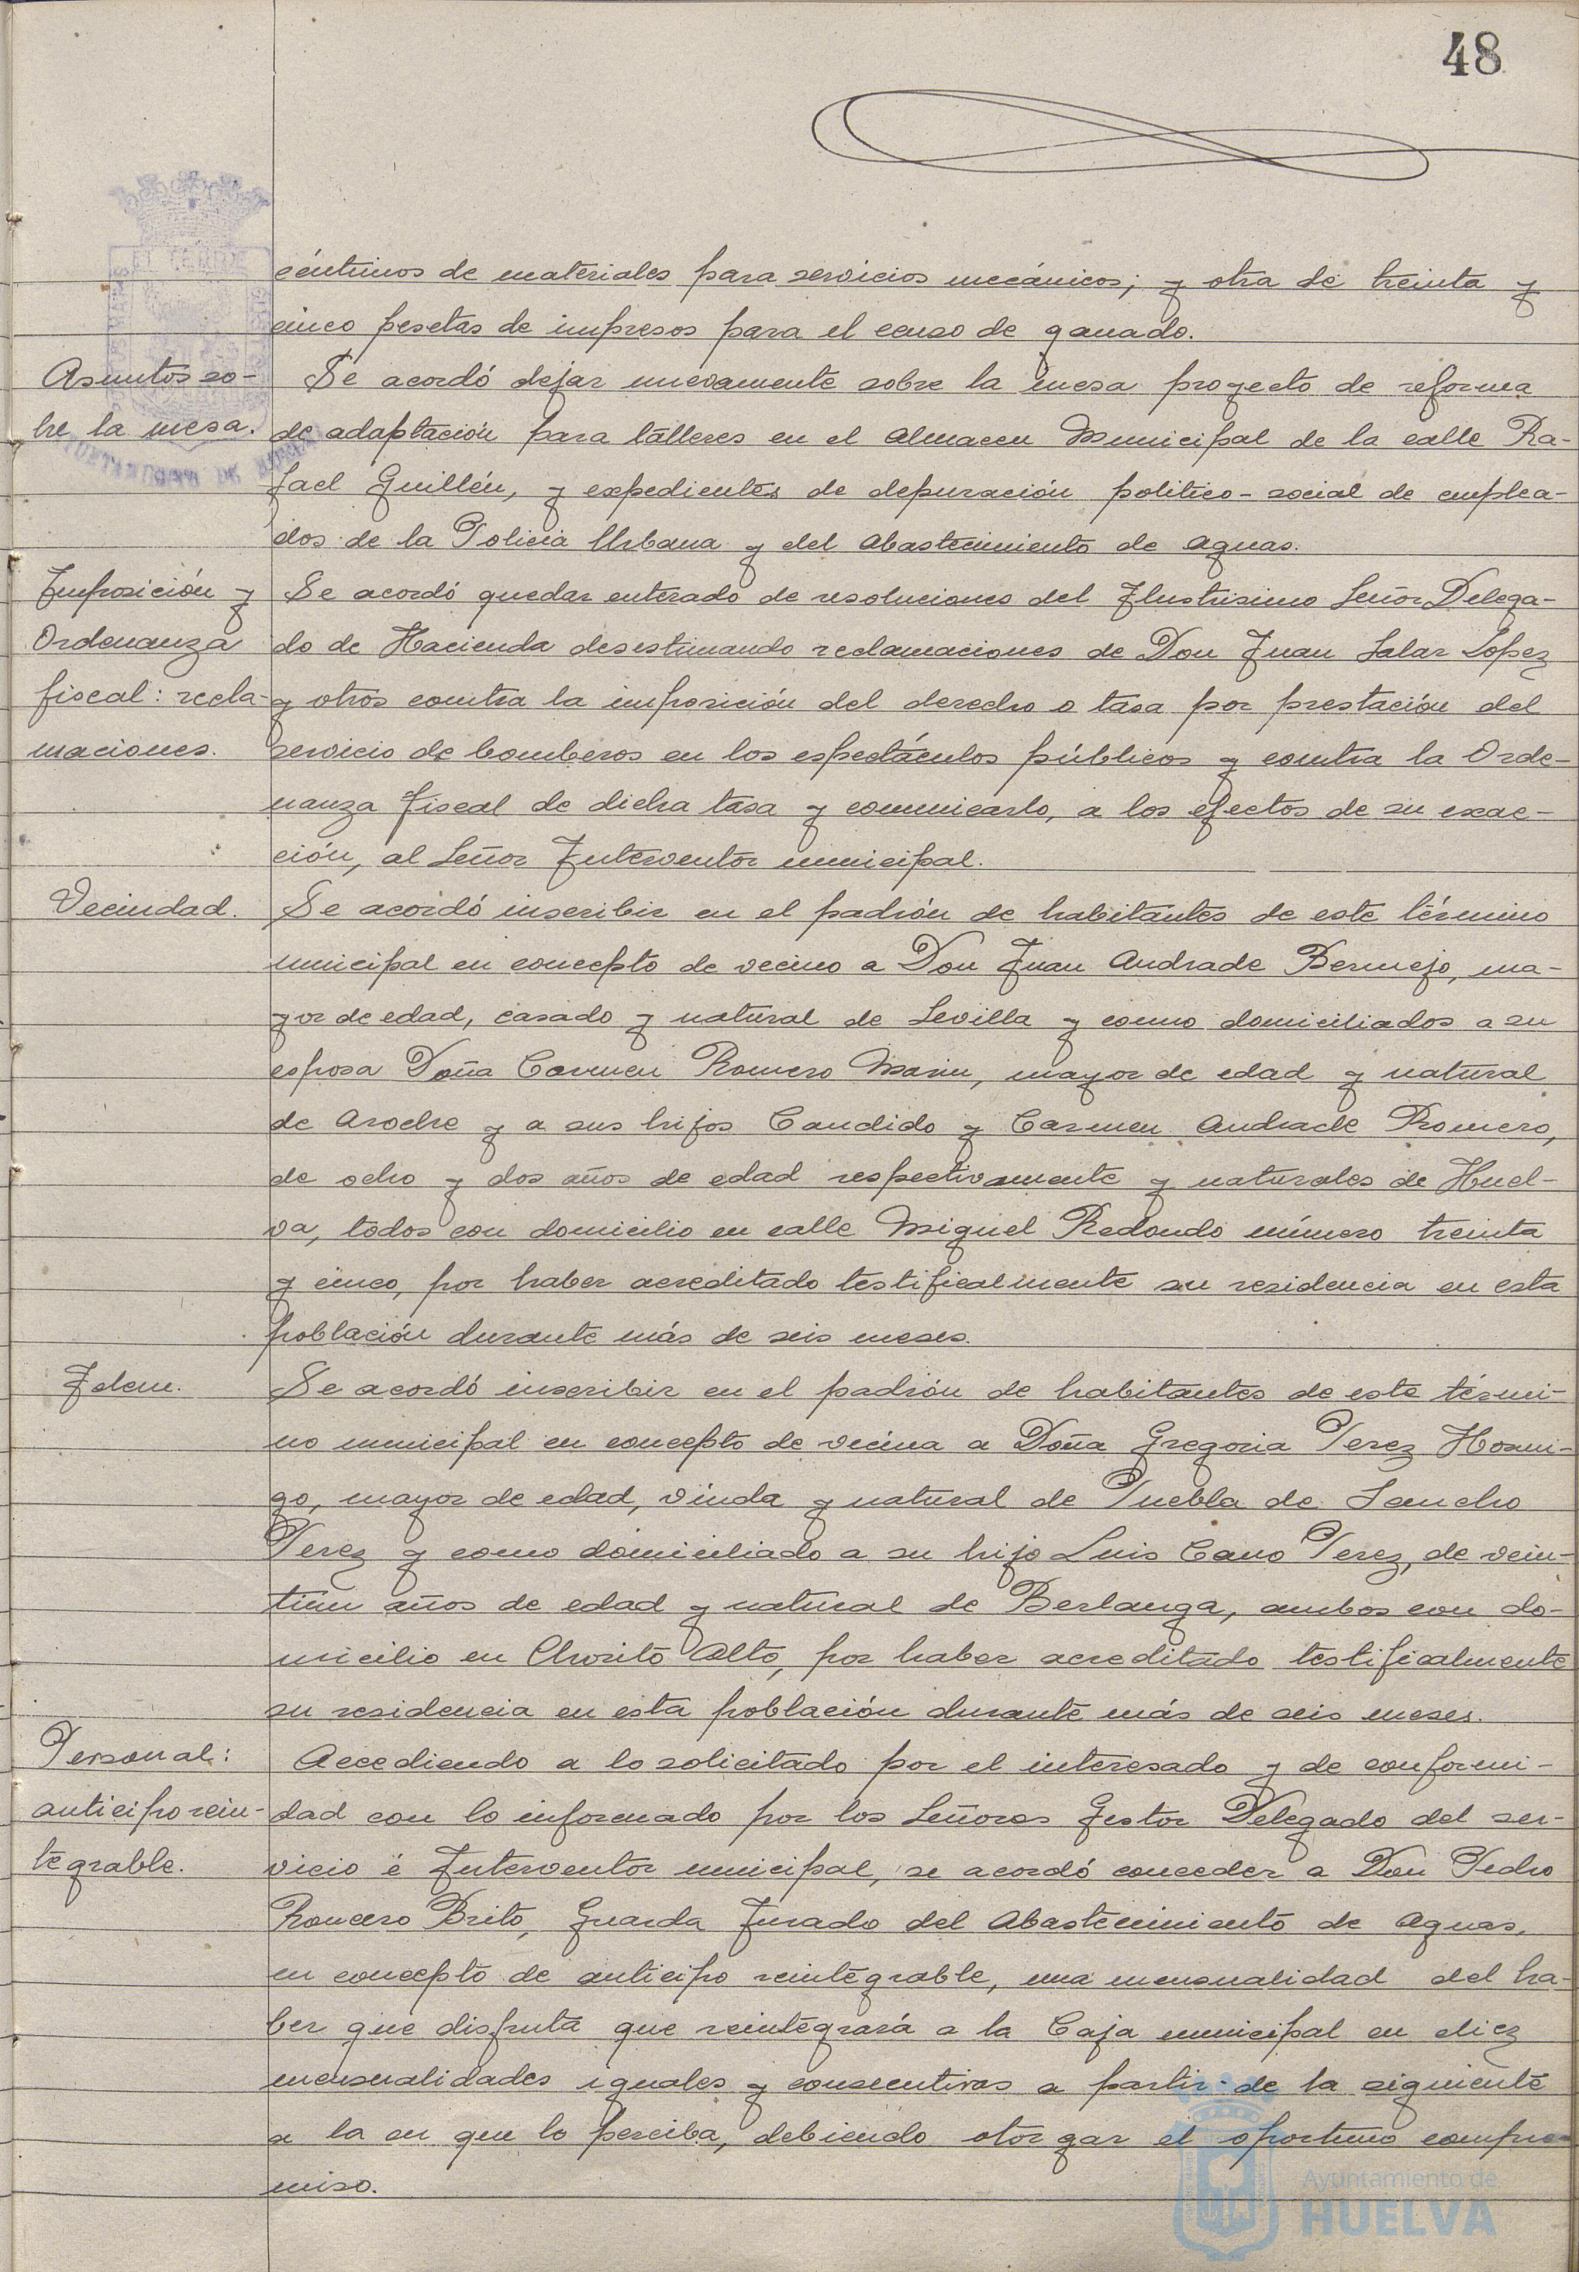 48
céntimos de materiales para servicios mecánicos; y otra de treinta y
cinco pesetas de impresos para el censo de ganado.
Asuntos so-
bre la mesa.
Se acordó dejar nuevamente sobre la mesa proyecto de reforma
de adaptación para talleres en el Almacen Municipal de la calle Ra-
fael Guillén, y expedientes de depuración politico-social de emplea-
dos de la Policia Urbana y del Abastecimiento de Aguas.
Imposición y
Ordenanza
fiscal: recla-
maciones.
Se acordó quedar enterado de resoluciones del Ilustrisimo Señor Delega-
do de Hacienda desestimando reclamaciones de Don Juan Salar Lopez
y otros contra la imposición del derecho o tasa por prestación del
servicio de bomberos en los espectáculos públicos y contra la Orde-
nanza fiscal de dicha tasa y comunicarlo, a los efectos de su exac-
ción, al Señor Interventor municipal.
Vecindad.
Se acordó inscribir en el padrón de habitantes de este término
municipal en concepto de vecino a Don Juan Andrade Bermejo, ma-
yor de edad, casado y natural de Sevilla y como domiciliados a su
esposa Doña Carmen Romero Marin, mayor de edad y natural
de Aroche y a sus hijos Candido y Carmen Andrade Romero,
de ocho y dos años de edad respectivamente y naturales de Huel-
va, todos con domicilio en calle Miguel Redondo número treinta
y cinco, por haber acreditado testificalmente su residencia en esta
población durante más de seis meses.
Idem.
Se acordó inscribir en el padrón de habitantes de este térmi-
no municipal en concepto de vecina a Doña Gregoria Perez Hormi-
go, mayor de edad, viuda y natural de Puebla de Sancho
Perez y como domiciliado a su hijo Luis Cano Perez, de vein-
tiun años de edad y natural de Berlanga, ambos con do-
micilio en Chorito Alto, por haber acreditado testificalmente
su residencia en esta población durante más de seis meses.
Personal:
anticipo rein-
tegrable.
Accediendo a lo solicitado por el interesado y de conformi-
dad con lo informado por los Señores Gestor Delegado del ser-
vicio é Interventor municipal, se acordó conceder a Don Pedro
Romero Brito, Guarda Jurado del Abastecimiento de Aguas,
en concepto de anticipo reintegrable, una mensualidad del ha-
ber que disfruta que reintegrará a la Caja municipal en diez
mensualidades iguales y consecutivas a partir de la siguiente
a la en que lo perciba, debiendo otorgar el oportuno compro-
miso.
Ayuntamiento de
HUELVA